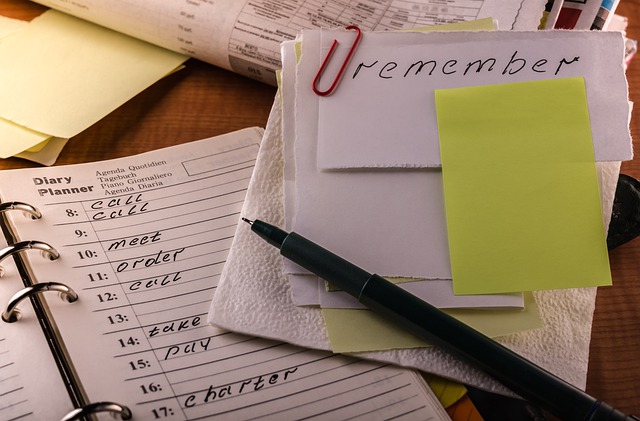 remember
Diary
Planner
Agenda Quotidien
Tagebuch
Piano Giornaliero
Agenda Diaria
call
8: call
9:
10: meet
11: order
12: call
13:
14: take
15: pay
16:
17: charter